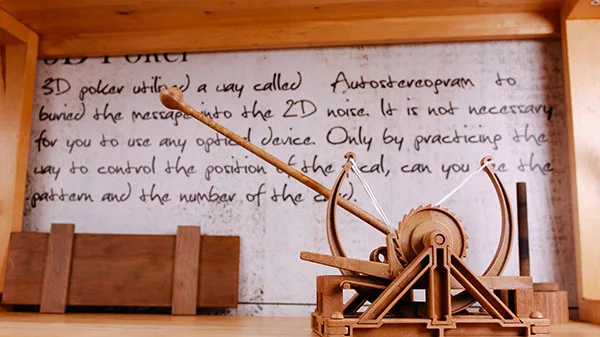 3D Poker
3D poker utilized a way called Autostereogram to
buried the message into the 2D noise. It is not necessary
for you to use any optical device. Only by practicing the
way to control the position of the focal, can you see the
pattern and the number of the card.